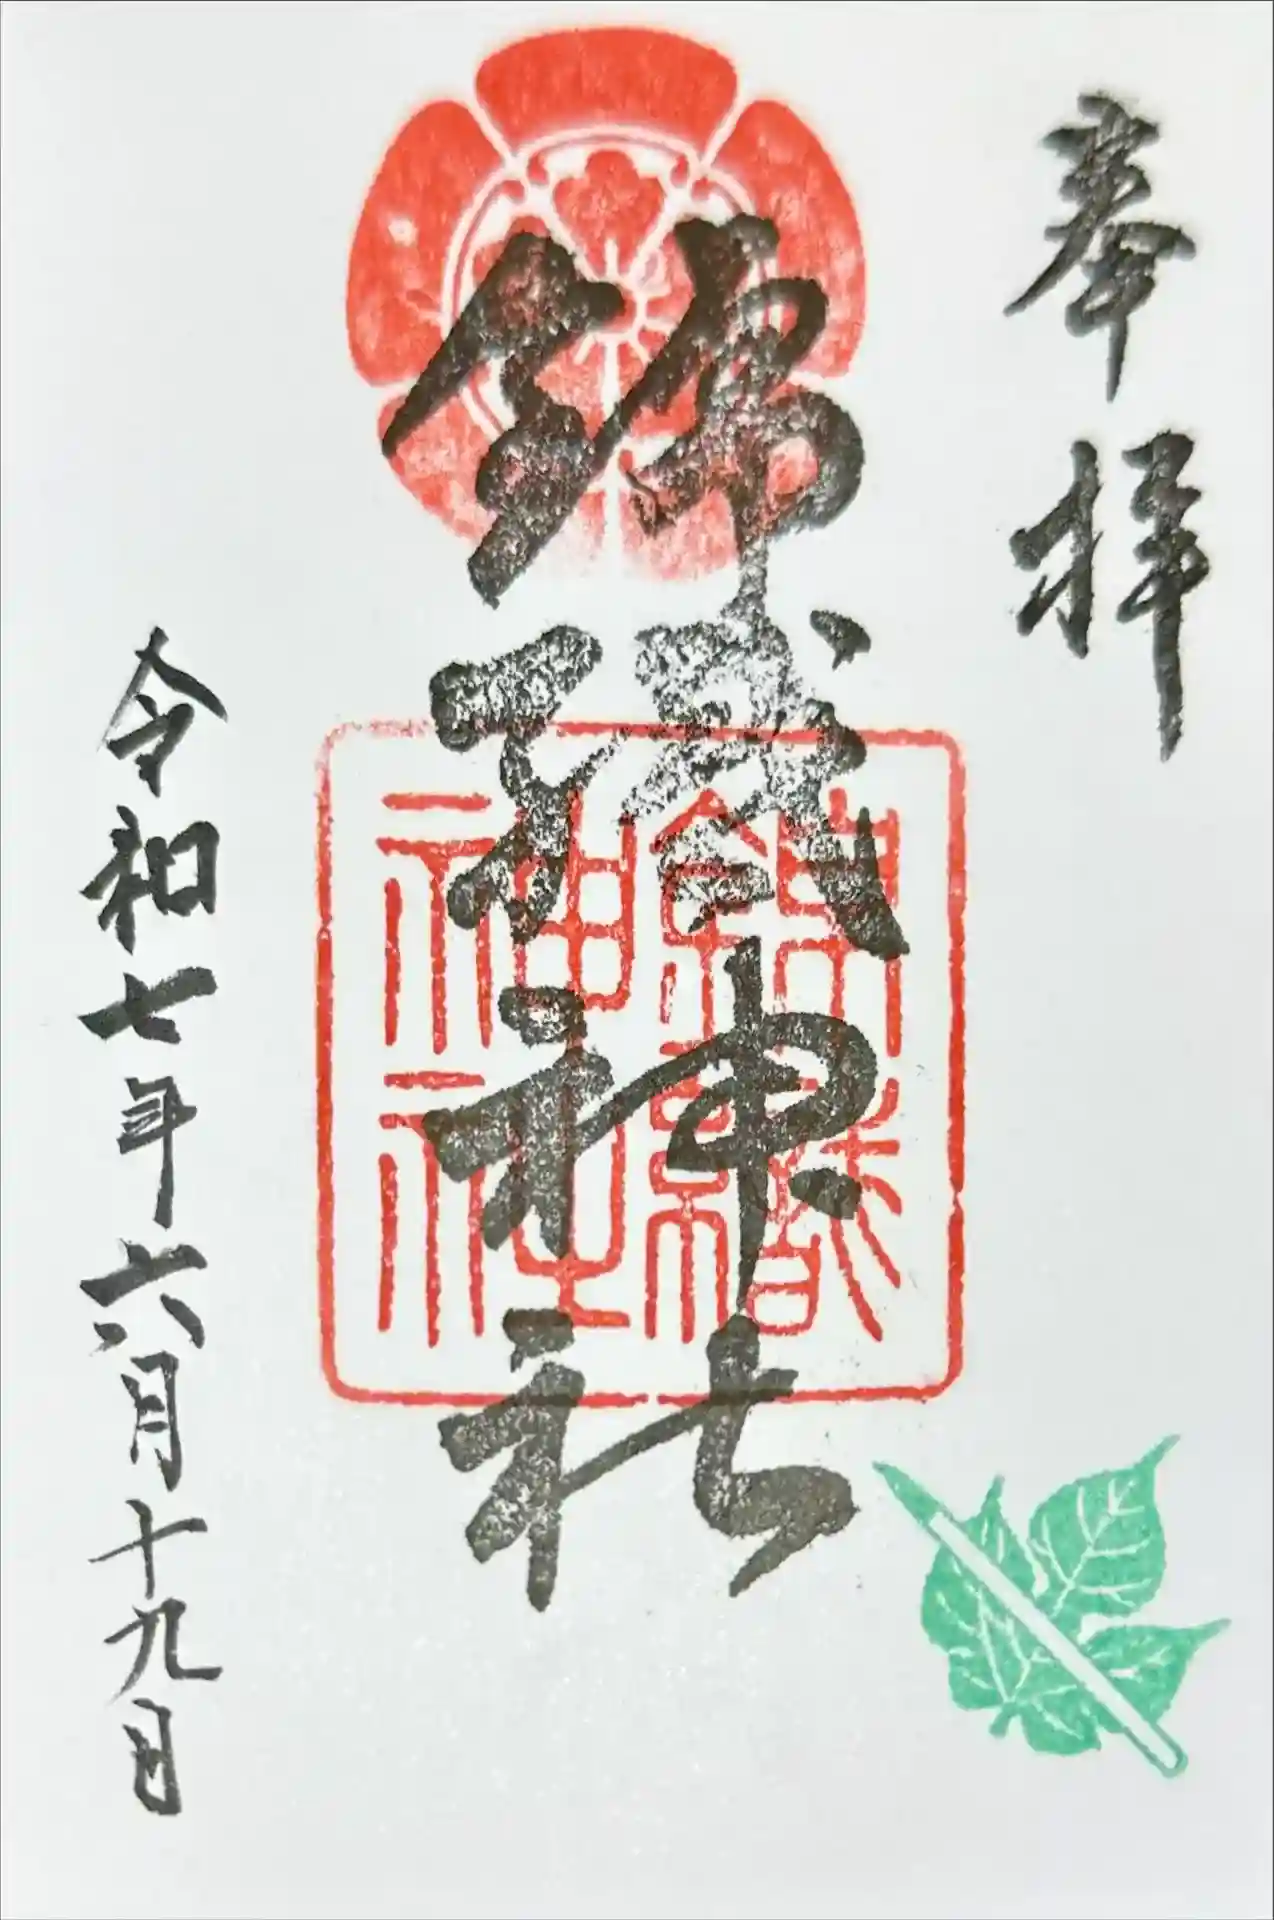 奉拝
錦織神社
錦織
神社
令和七年六月十九日